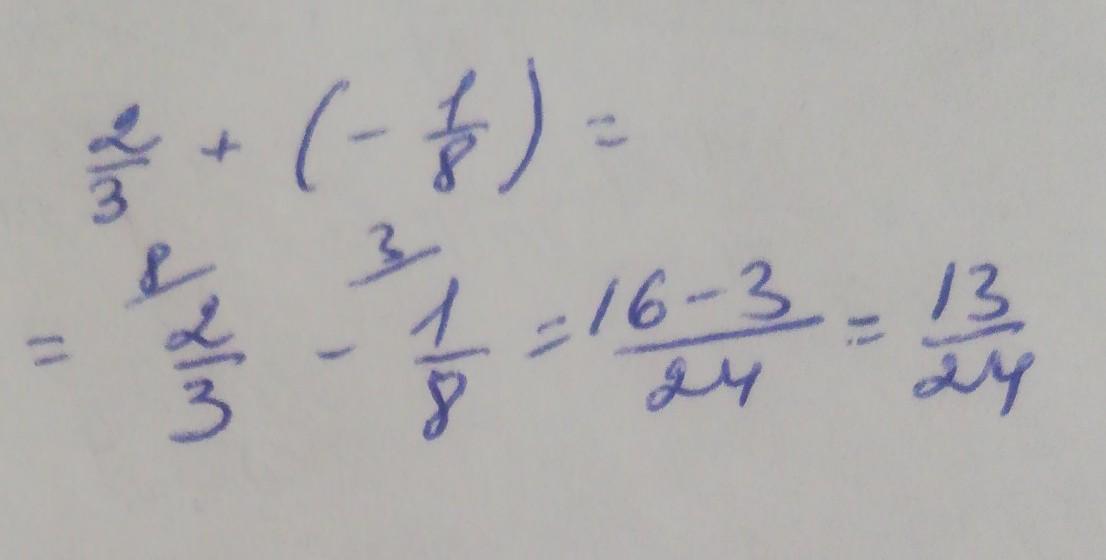 2/3 + (- 1/8) =
= 8/ 2/3 - 3/ 1/8 = 16-3/24 = 13/24